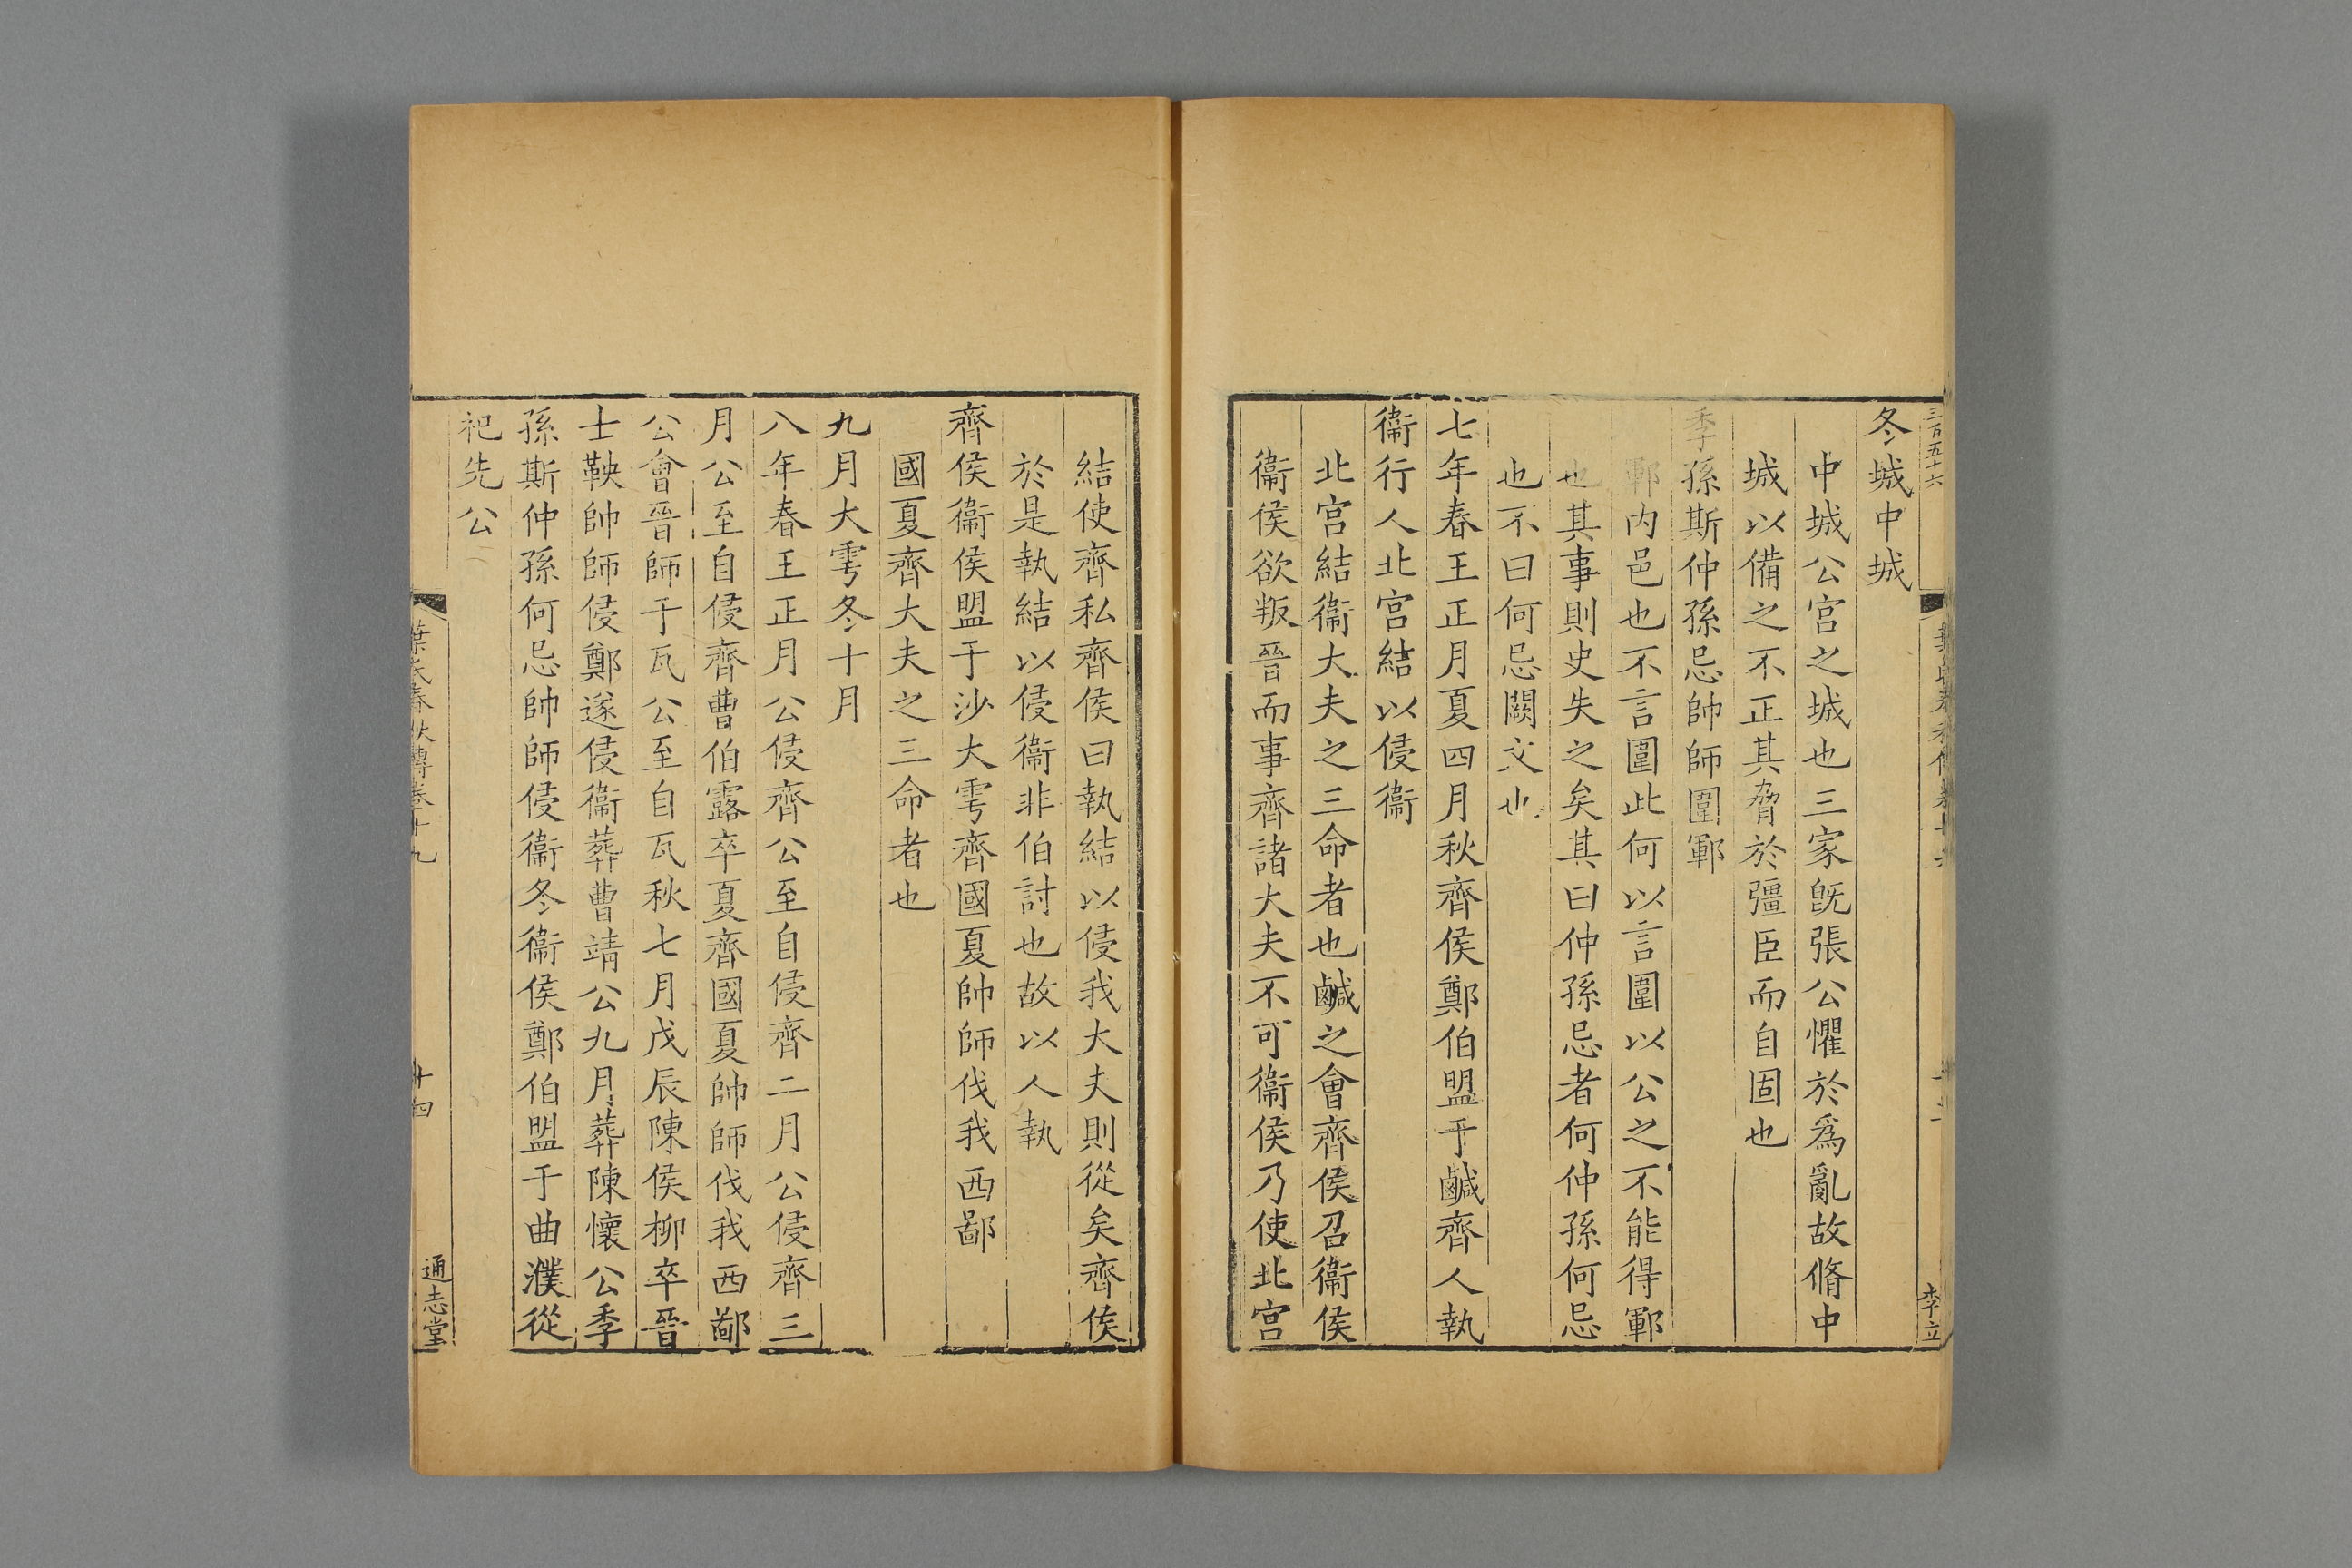 三百五十六
李立
冬城中城
中城公宮之城也三家旣張公懼於爲亂故脩中
城以備之不正其脅於彊臣而自固也
季孫斯仲孫忌帥師圍鄆
鄆内邑也不言圍此何以言圍以公之不能得鄆
也其事則史失之矣其曰仲孫忌者何仲孫何忌
也不曰何忌闕文也
七年春王正月夏四月秋齊侯鄭伯盟于鹹齊人執
衞行人北宮結以侵衞
北宮結衞大夫之三命者也鹹之會齊侯召衞侯
衞侯欲叛晉而事齊諸大夫不可衞侯乃使北宮
結使齊私齊侯曰執結以侵我大夫則從矣齊侯
於是執結以侵衞非伯討也故以人執
齊侯衞侯盟于沙大雩齊國夏帥師伐我西鄙
國夏齊大夫之三命者也
九月大雩冬十月
八年春王正月公侵齊公至自侵齊二月公侵齊三
月公至自侵齊曹伯露卒夏齊國夏帥師伐我西鄙
公會晉師于瓦公至自瓦秋七月戊辰陳侯柳卒晉
士鞅帥師侵鄭遂侵衞葬曹靖公九月葬陳懷公季
孫斯仲孫何忌帥師侵衞冬衞侯鄭伯盟于曲濮從
祀先公
葉氏春秋傳卷十九
十四
通志堂